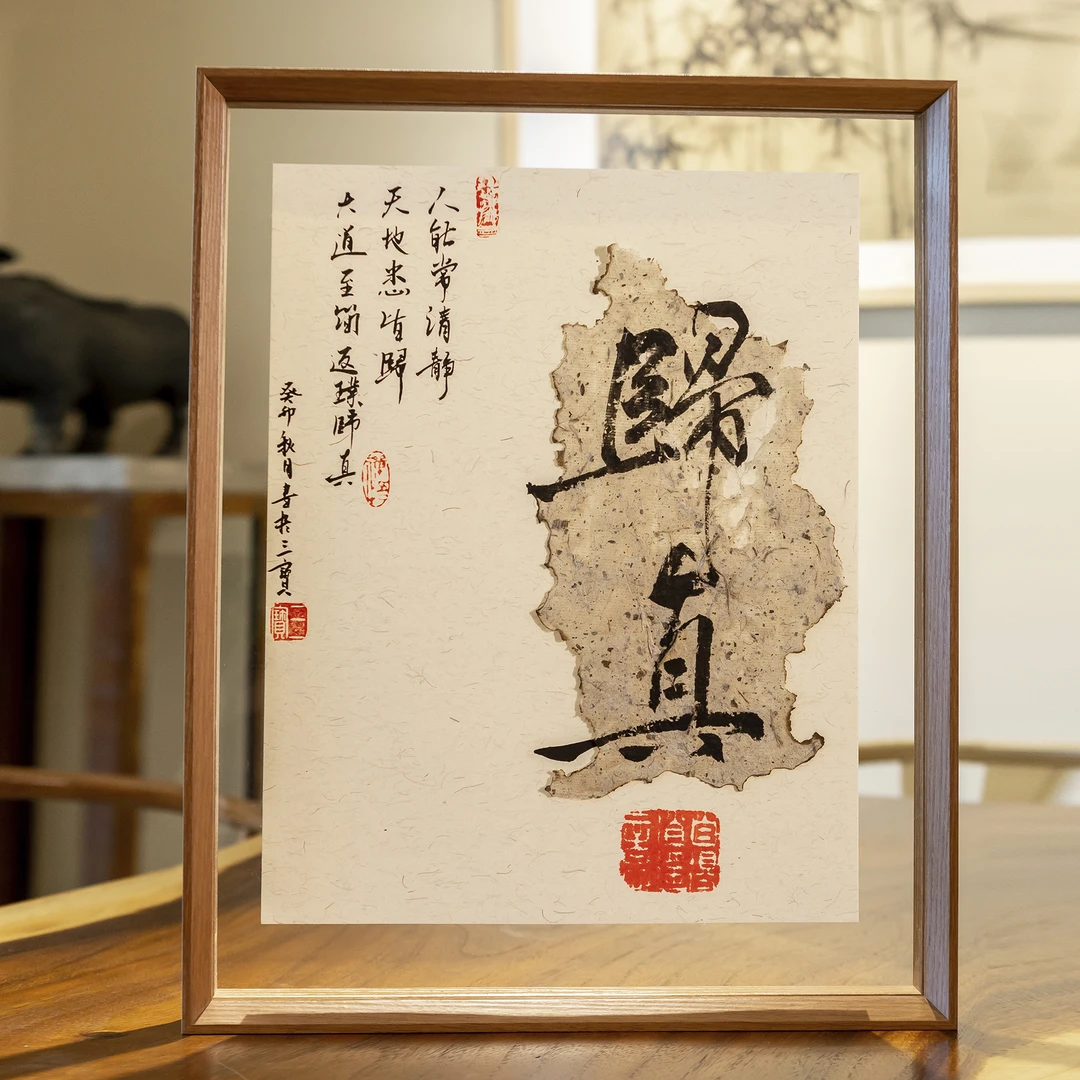 歸真
人能常清靜
天地悉皆歸
大道至簡返璞歸真
癸卯秋月書於三寶
三寶